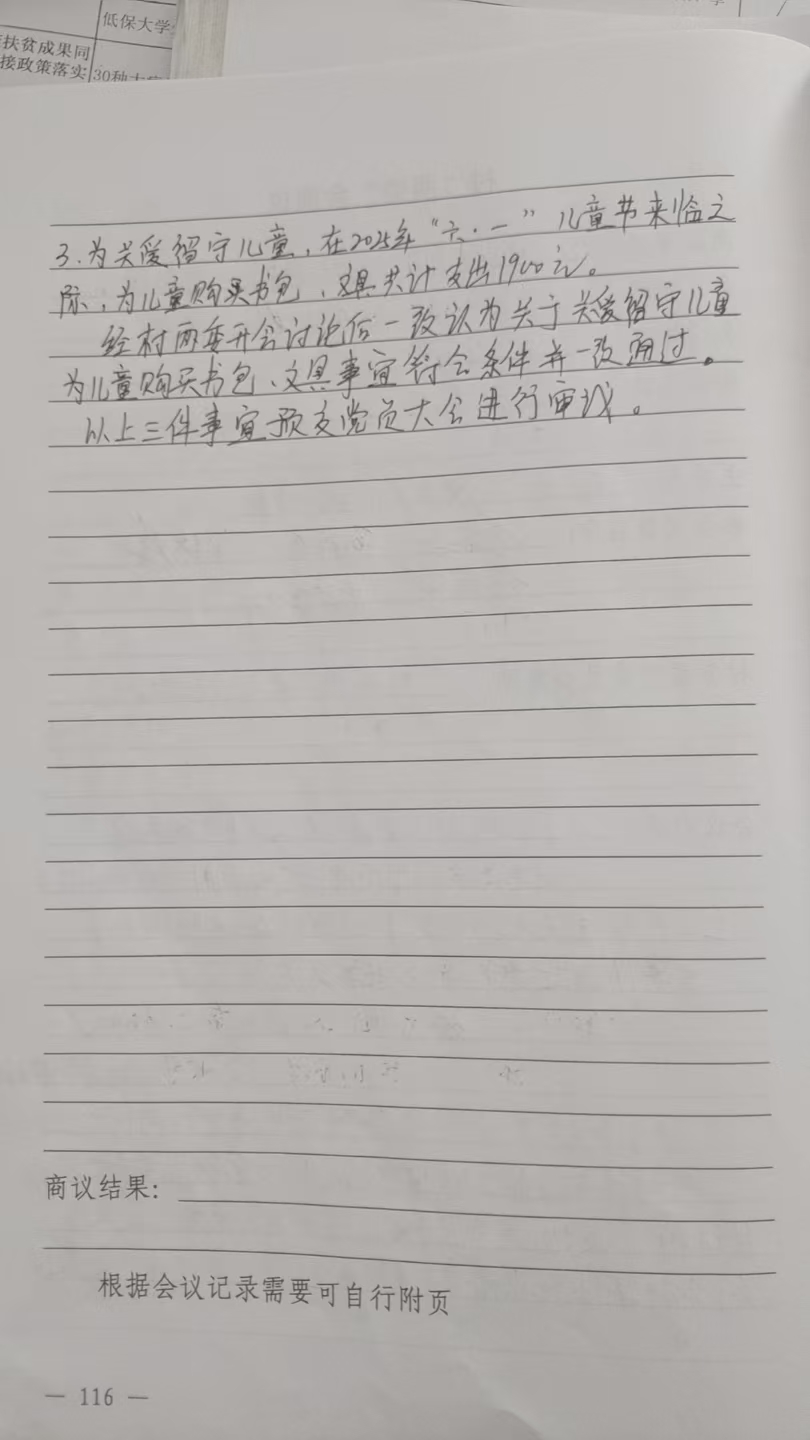 低保大学
扶贫成果同
接政策落实
30种大
3.为关爱留守儿童,在2025年“六·一”儿童节来临之
际,为儿童购买书包、文具共计支出1900元。
经村两委开会讨论后一致认为关于关爱留守儿童
为儿童购买书包、文具事宜符合条件并一致通过。
以上三件事宜预交党员大会进行审议。
商议结果:
根据会议记录需要可自行附页
— 116 —